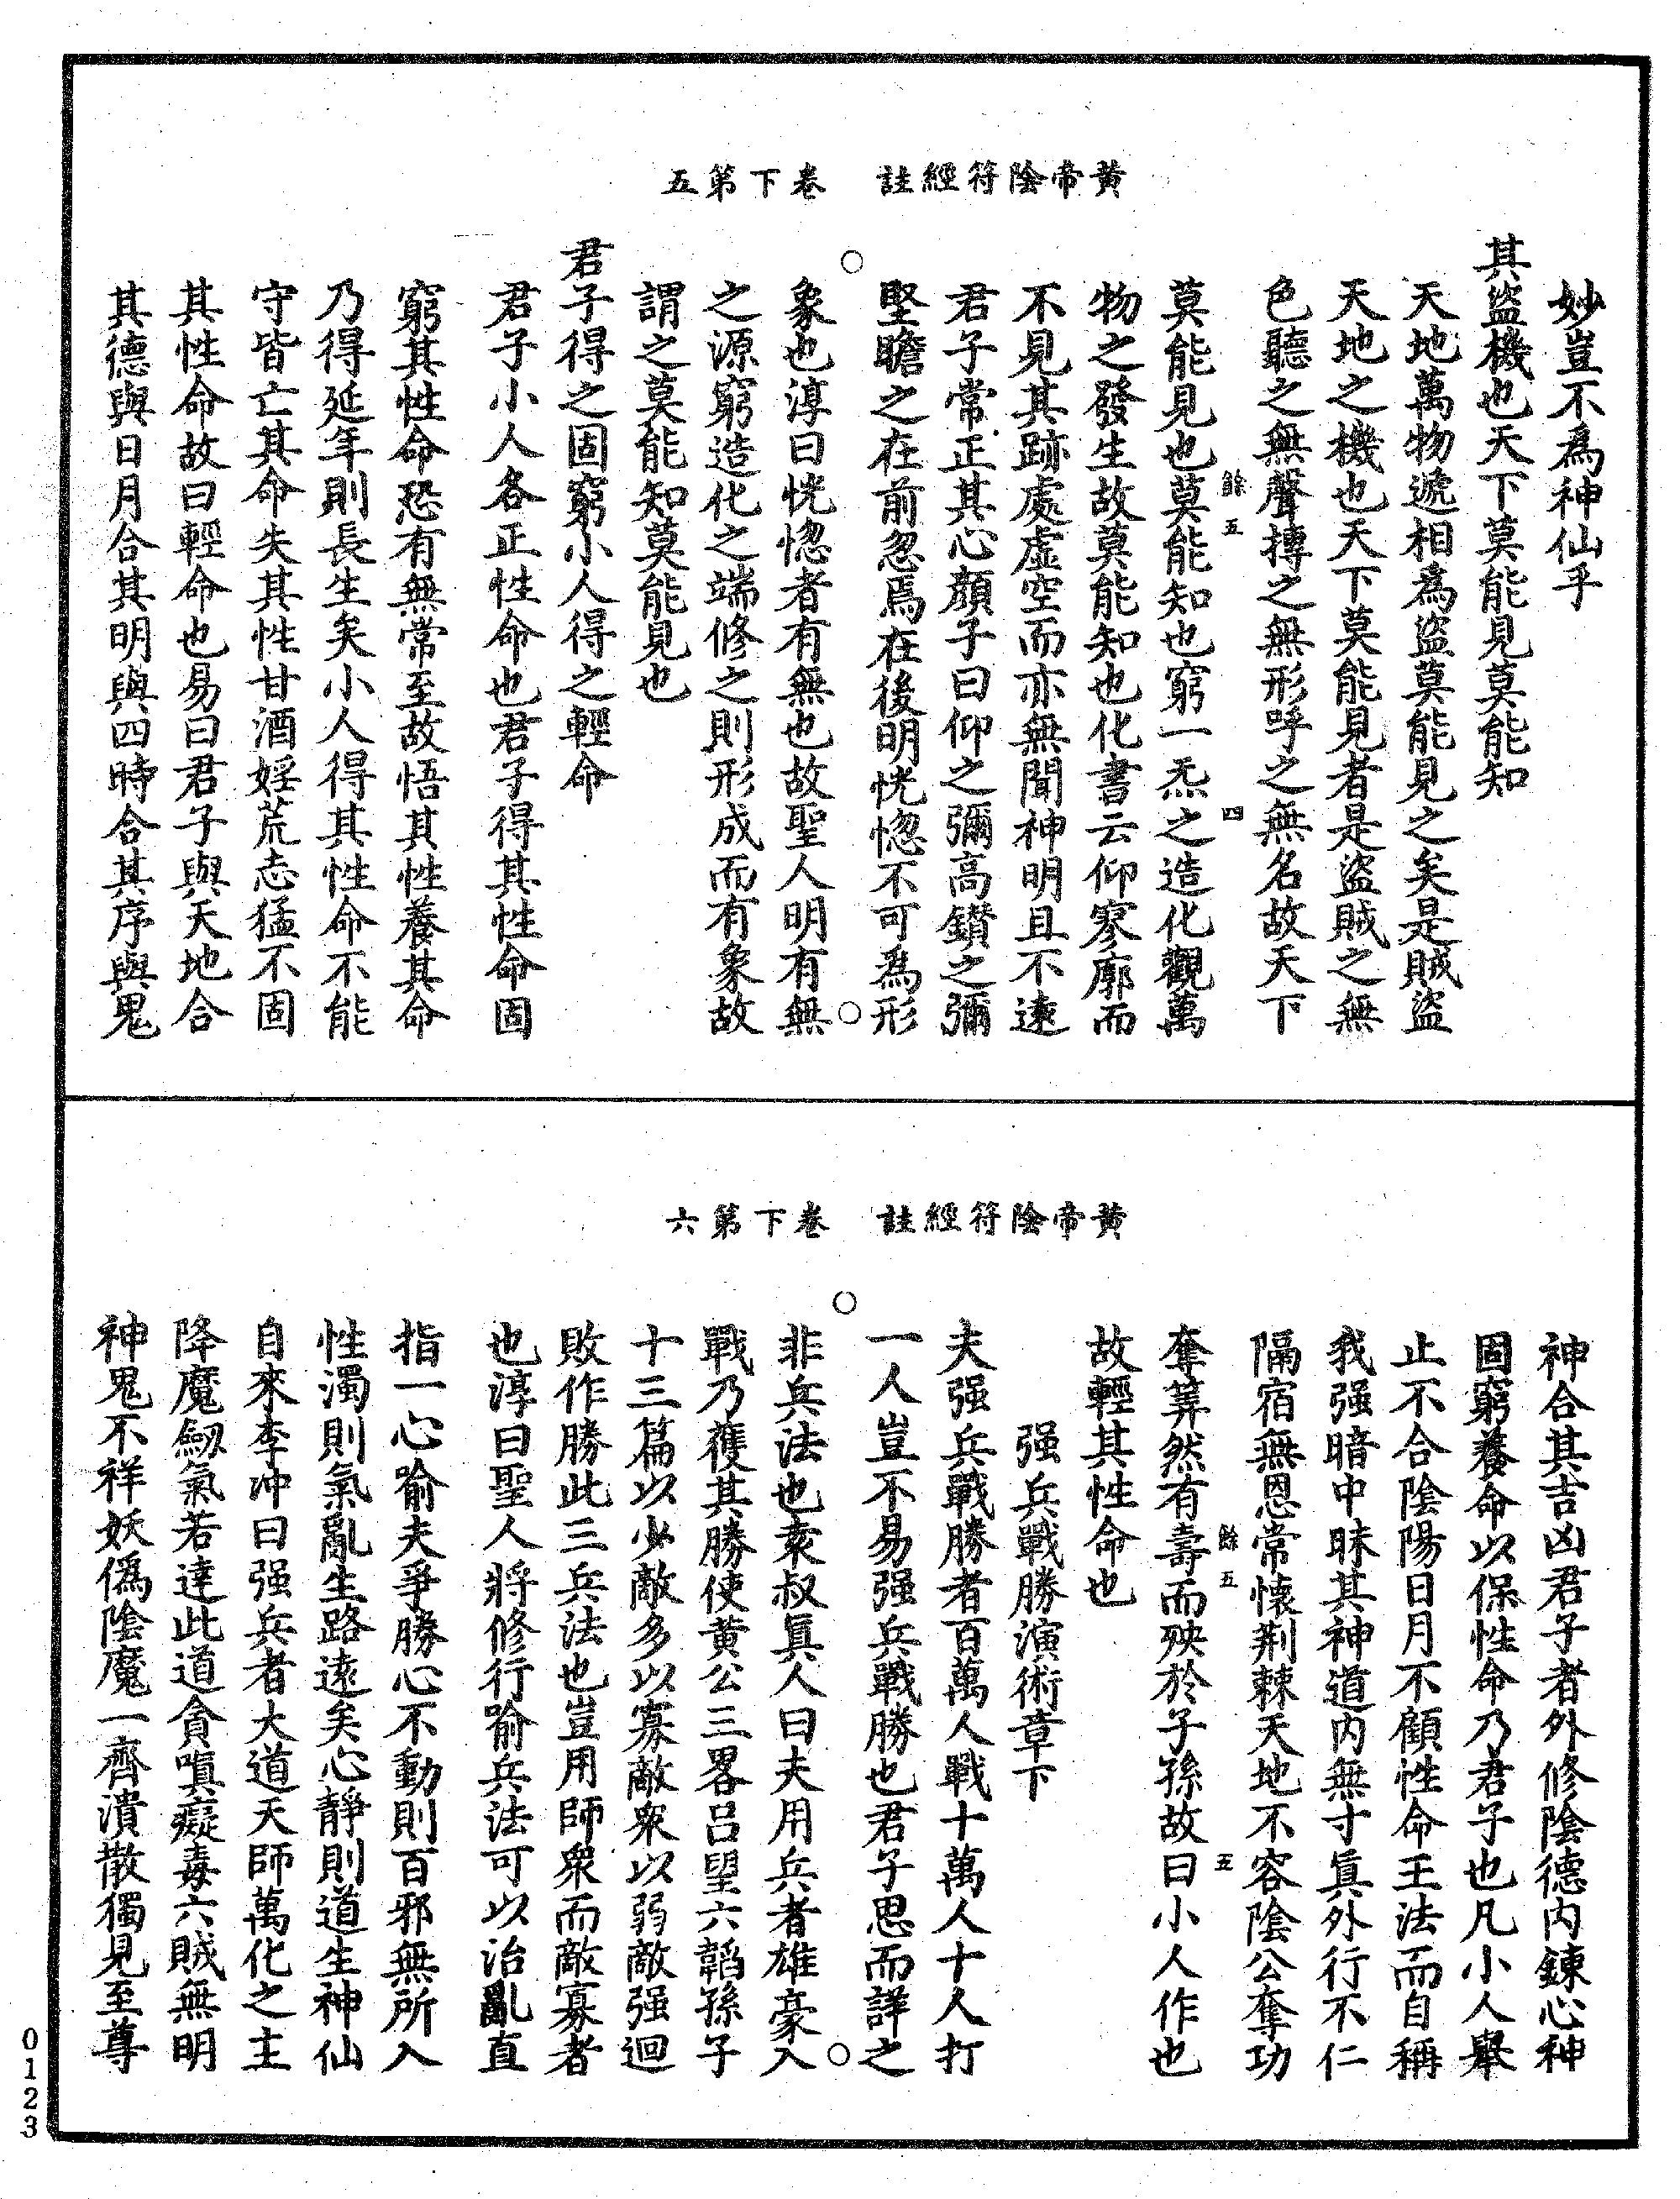 黄帝陰符經註　卷下第五
妙豈不爲神仙乎
其盜機也天下莫能見莫能知
天地萬物遞相爲盜莫能見之矣是賊盜
天地之機也天下莫能見者是盜賊之無
色聽之無聲摶之無形呼之無名故天下
餘五　四
莫能見也莫能知也窮一炁之造化觀萬
物之發生故莫能知也化書云仰寥廓而
不見其跡處虛空而亦無聞神明且不遠
君子常正其心顏子曰仰之彌高鑽之彌
堅瞻之在前忽焉在後明恍惚不可爲形
象也淳曰恍惚者有無也故聖人明有無
之源窮造化之端修之則形成而有象故
謂之莫能知莫能見也
君子得之固窮小人得之輕命
君子小人各正性命也君子得其性命固
窮其性命恐有無常至故悟其性養其命
乃得延年則長生矣小人得其性命不能
守皆亡其命失其性甘酒婬荒志猛不固
其性命故曰輕命也易曰君子與天地合
其德與日月合其明與四時合其序與鬼
黄帝陰符經註　卷下第六
神合其吉凶君子者外修陰德内鍊心神
固窮養命以保性命乃君子也凡小人舉
止不合陰陽日月不顧性命王法而自稱
我强暗中昧其神道内無寸眞外行不仁
隔宿無恩常懷荆棘天地不容陰公奪功
餘五　五
奪筭然有壽而殃於子孫故曰小人作也
故輕其性命也
强兵戰勝演術章下
夫强兵戰勝者百萬人戰十萬人十人打
一人豈不易强兵戰勝也君子思而詳之
非兵法也索叔眞人曰夫用兵者雄豪入
戰乃獲其勝使黄公三畧吕望六韜孫子
十三篇以少敵多以寡敵衆以弱敵强迴
敗作勝此三兵法也豈用師衆而敵寡者
也淳曰聖人將修行喻兵法可以治亂直
指一心喻夫爭勝心不動則百邪無所入
性濁則氣亂生路遠矣心静則道生神仙
自來李冲曰强兵者大道天師萬化之主
降魔劒氣若達此道貪嗔癡毒六賊無明
神鬼不祥妖僞陰魔一齊潰散獨見至尊
0123